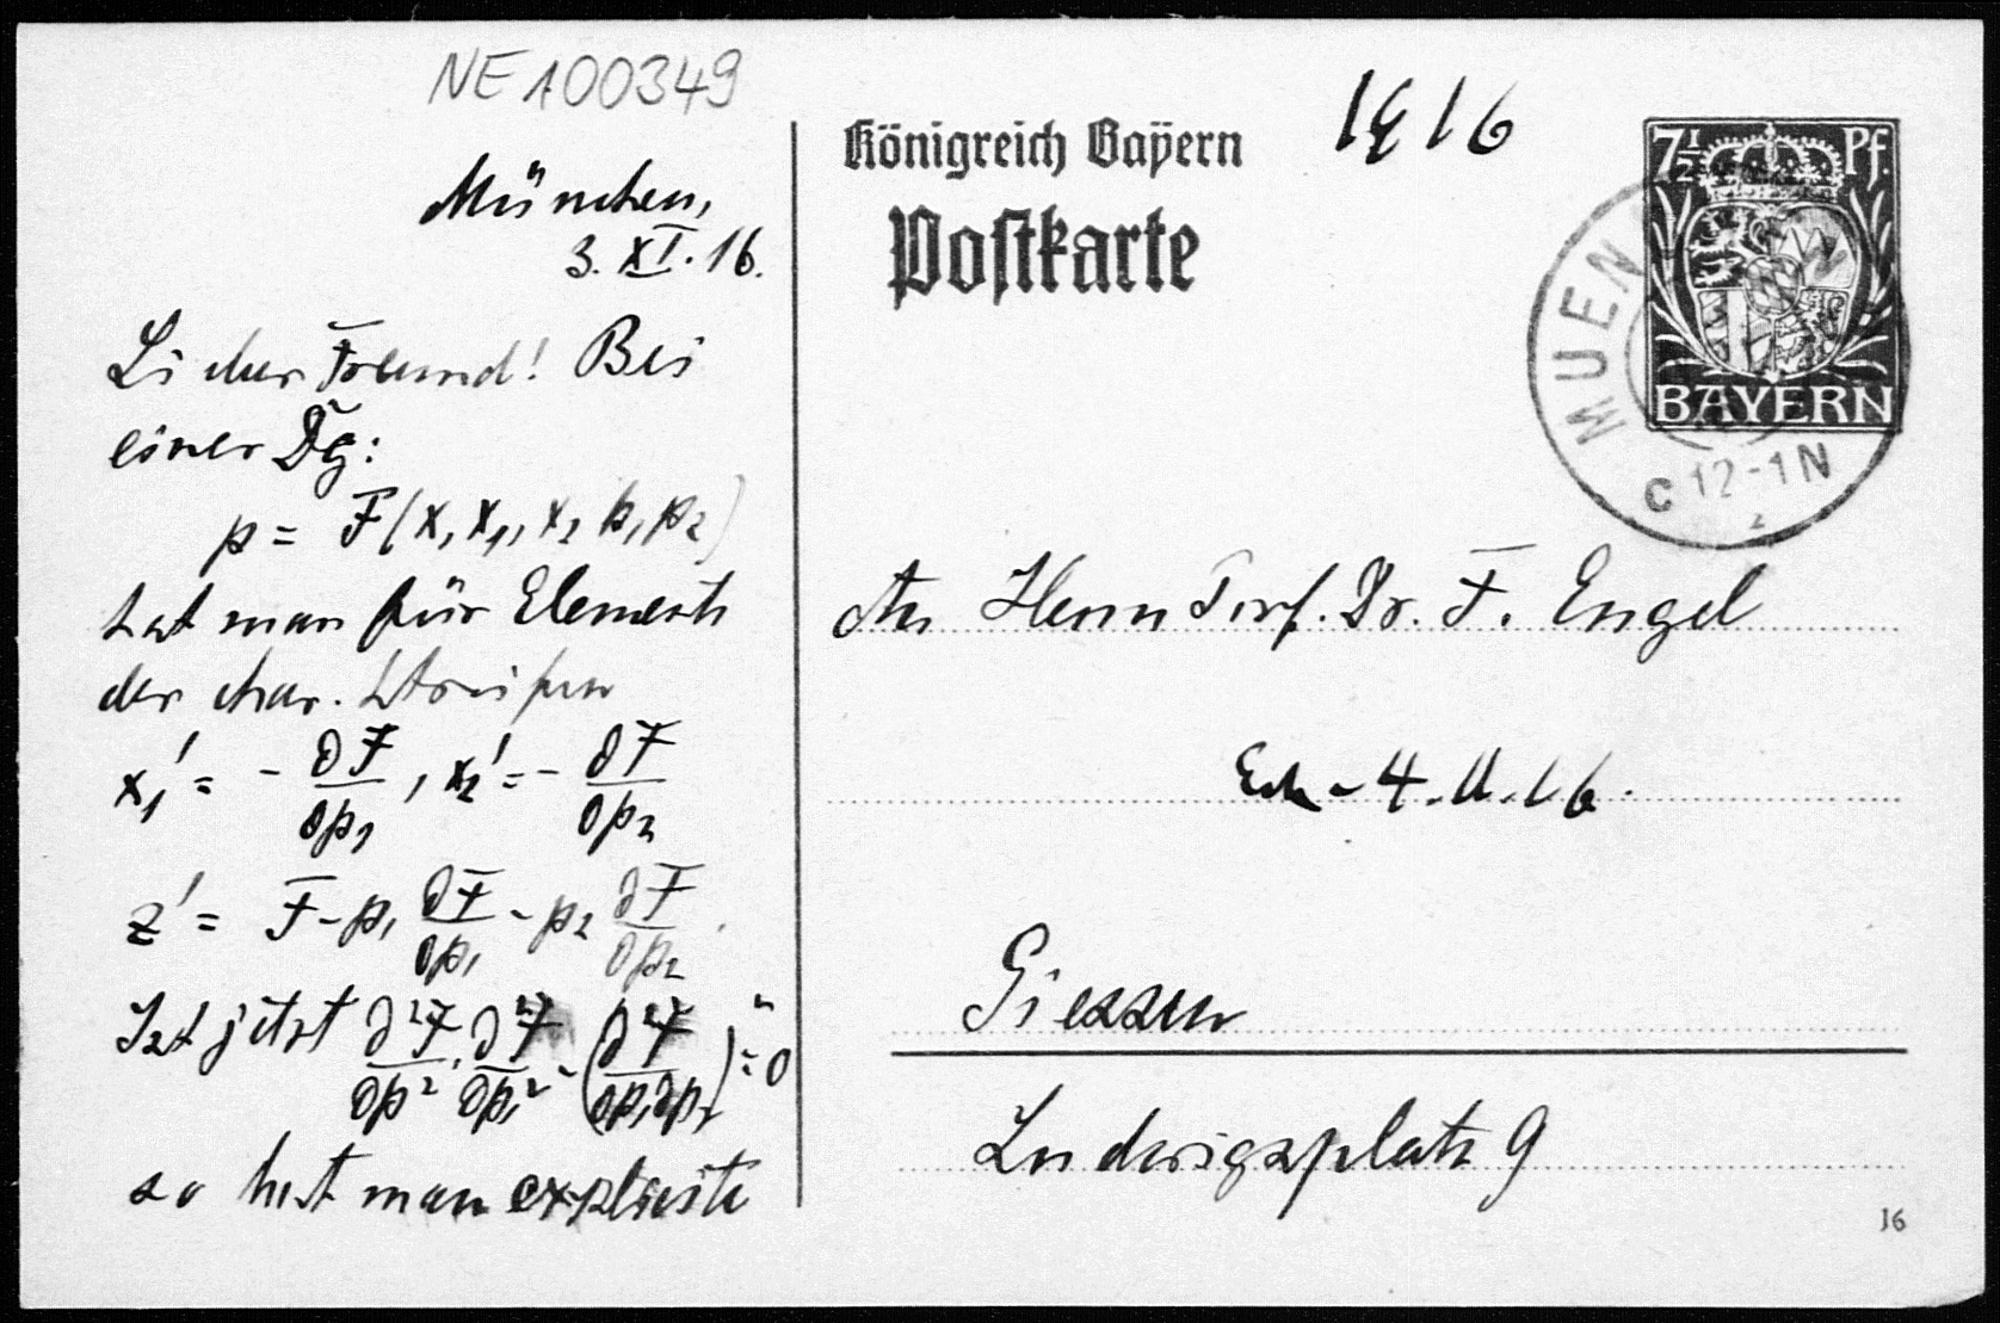 NE 100349
München,
3. XI. 16.
Lieber Freund! Bei
einer Dg:
p = F(x, x₁, x₂ p₁ p₂)
hat man für Elemente
der char. Streifen
x₁' = - ∂F/∂p₁, x₂' = - ∂F/∂p₂
z' = F - p₁ ∂F/∂p₁ - p₂ ∂F/∂p₂.
Ist jetzt ∂²F/∂p² · ∂²F/∂p₁² - (∂²F/∂p₁∂p₂)² = 0
so hat man explicite
Königreich Bayern
1916
Postkarte
7½ Pf.
BAYERN
MUEN
C 12-1 N
2
An Herrn Prof. Dr. F. Engel
4. 11. 16.
Giessen
Ludwigsplatz 9
16